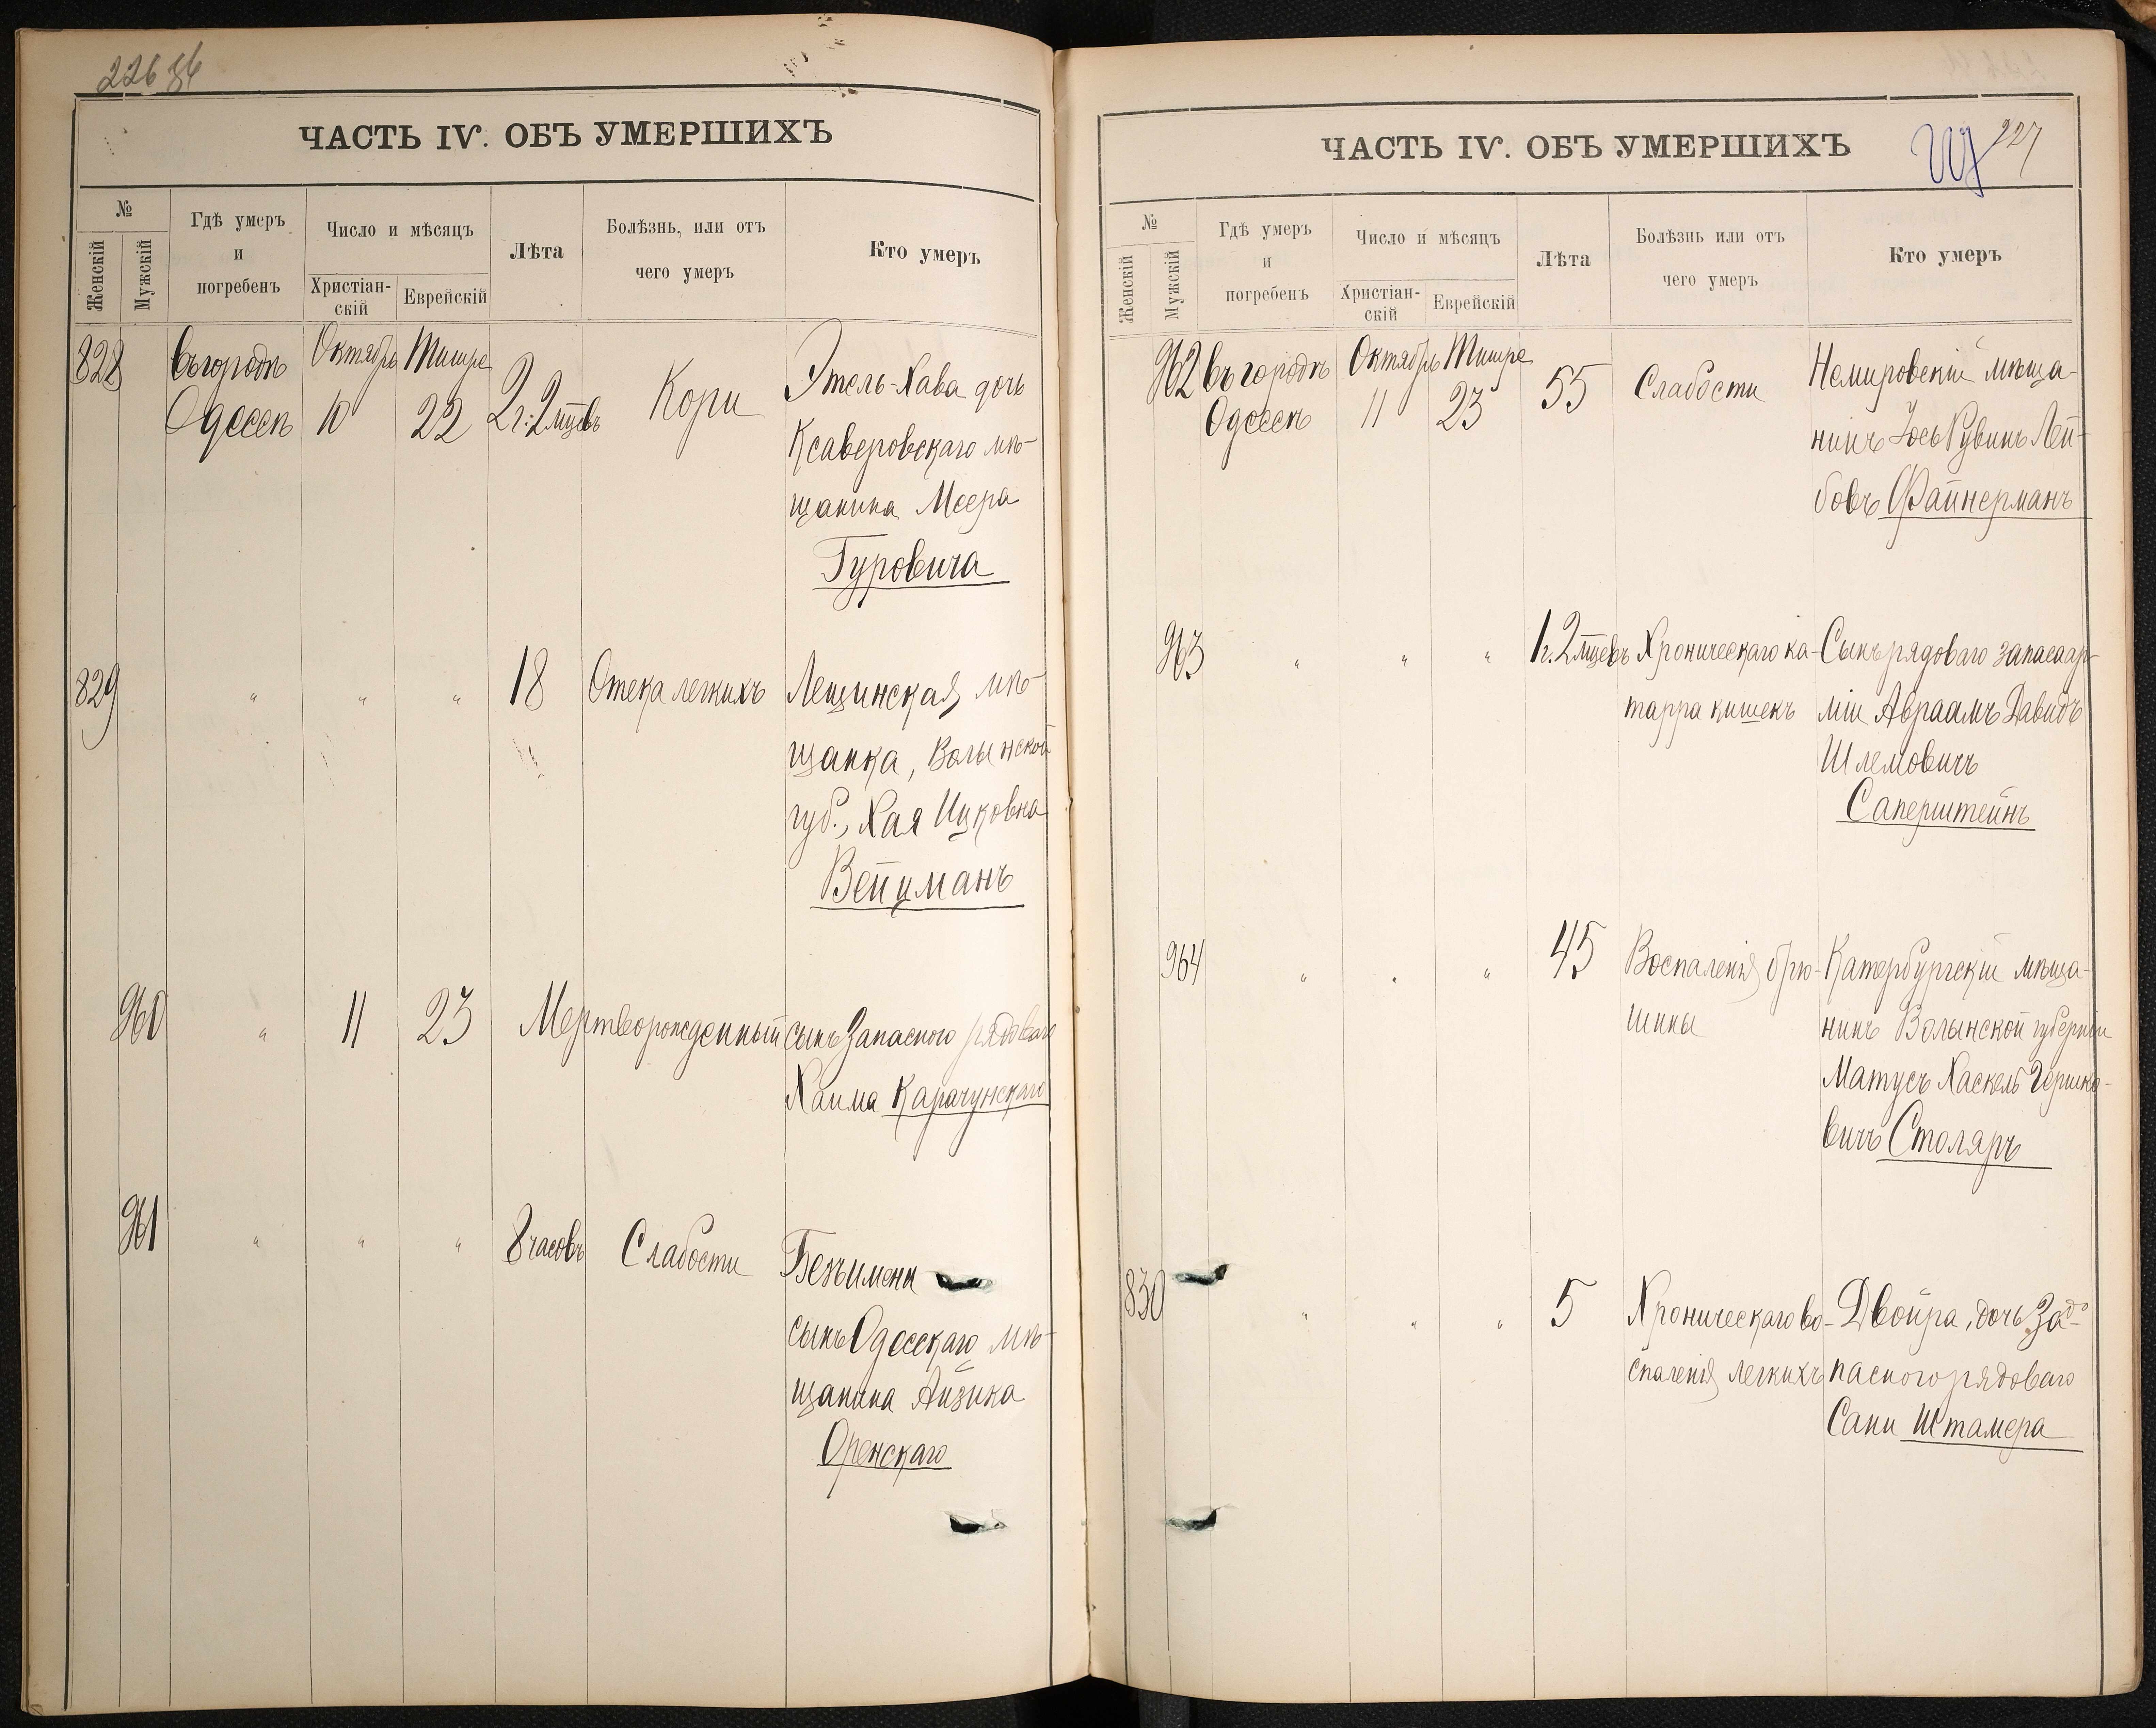 226
ЧАСТЬ IV. ОБЪ УМЕРШИХЪ
№
Женскій
Мужскій
Гдѣ умеръ
и
погребенъ
Число и мѣсяцъ
Христіан-
скій
Еврейскій
Лѣта
Болѣзнь, или отъ
чего умеръ
Кто умеръ
828 въ городѣ Октябрь Тишре Этель-Хава дочь
Одессѣ 10 22 2г. 2 мцевъ Кори Ксаверовскаго мѣ-
щанина Меера
Гуровича
829 " " " 18 Отека легкихъ Лещинская мѣ-
щанка, Волынской
губ., Хая Ицковна
Вейцманъ
960 " 11 23 Мертворожденный сынъ Запасного рядоваго
Хаима Карачунскаго
961 " " " 8 часовъ Слабости Безъ имени
сынъ Одесскаго мѣ-
щанина Айзика
Оренскаго
ЧАСТЬ IV. ОБЪ УМЕРШИХЪ
227
№
Женскій
Мужскій
Гдѣ умеръ
и
погребенъ
Число и мѣсяцъ
Христіан-
скій
Еврейскій
Лѣта
Болѣзнь или отъ
чего умеръ
Кто умеръ
962 въ городѣ Октябрь Тишре 55 Слабости Немировскій мѣща-
Одессѣ 11 23 нинъ Іось Рувинъ Лей-
бовъ Файнерманъ
963 " " " 1г. 2 мцевъ Хроническаго ка- Сынъ рядоваго запаса ар-
тарра кишекъ міи Авраамъ Давидъ
Шлемовичъ
Саперштейнъ
964 " " " 45 Воспаленія брю- Катербургскій мѣща-
шины нинъ Волынской губерніи
Матусъ Хаскель Гершко-
вичъ Столяръ
830 " " " 5 Хроническаго во- Двойра, дочь За-
спаленія легкихъ пасного рядоваго
Сани Штамера